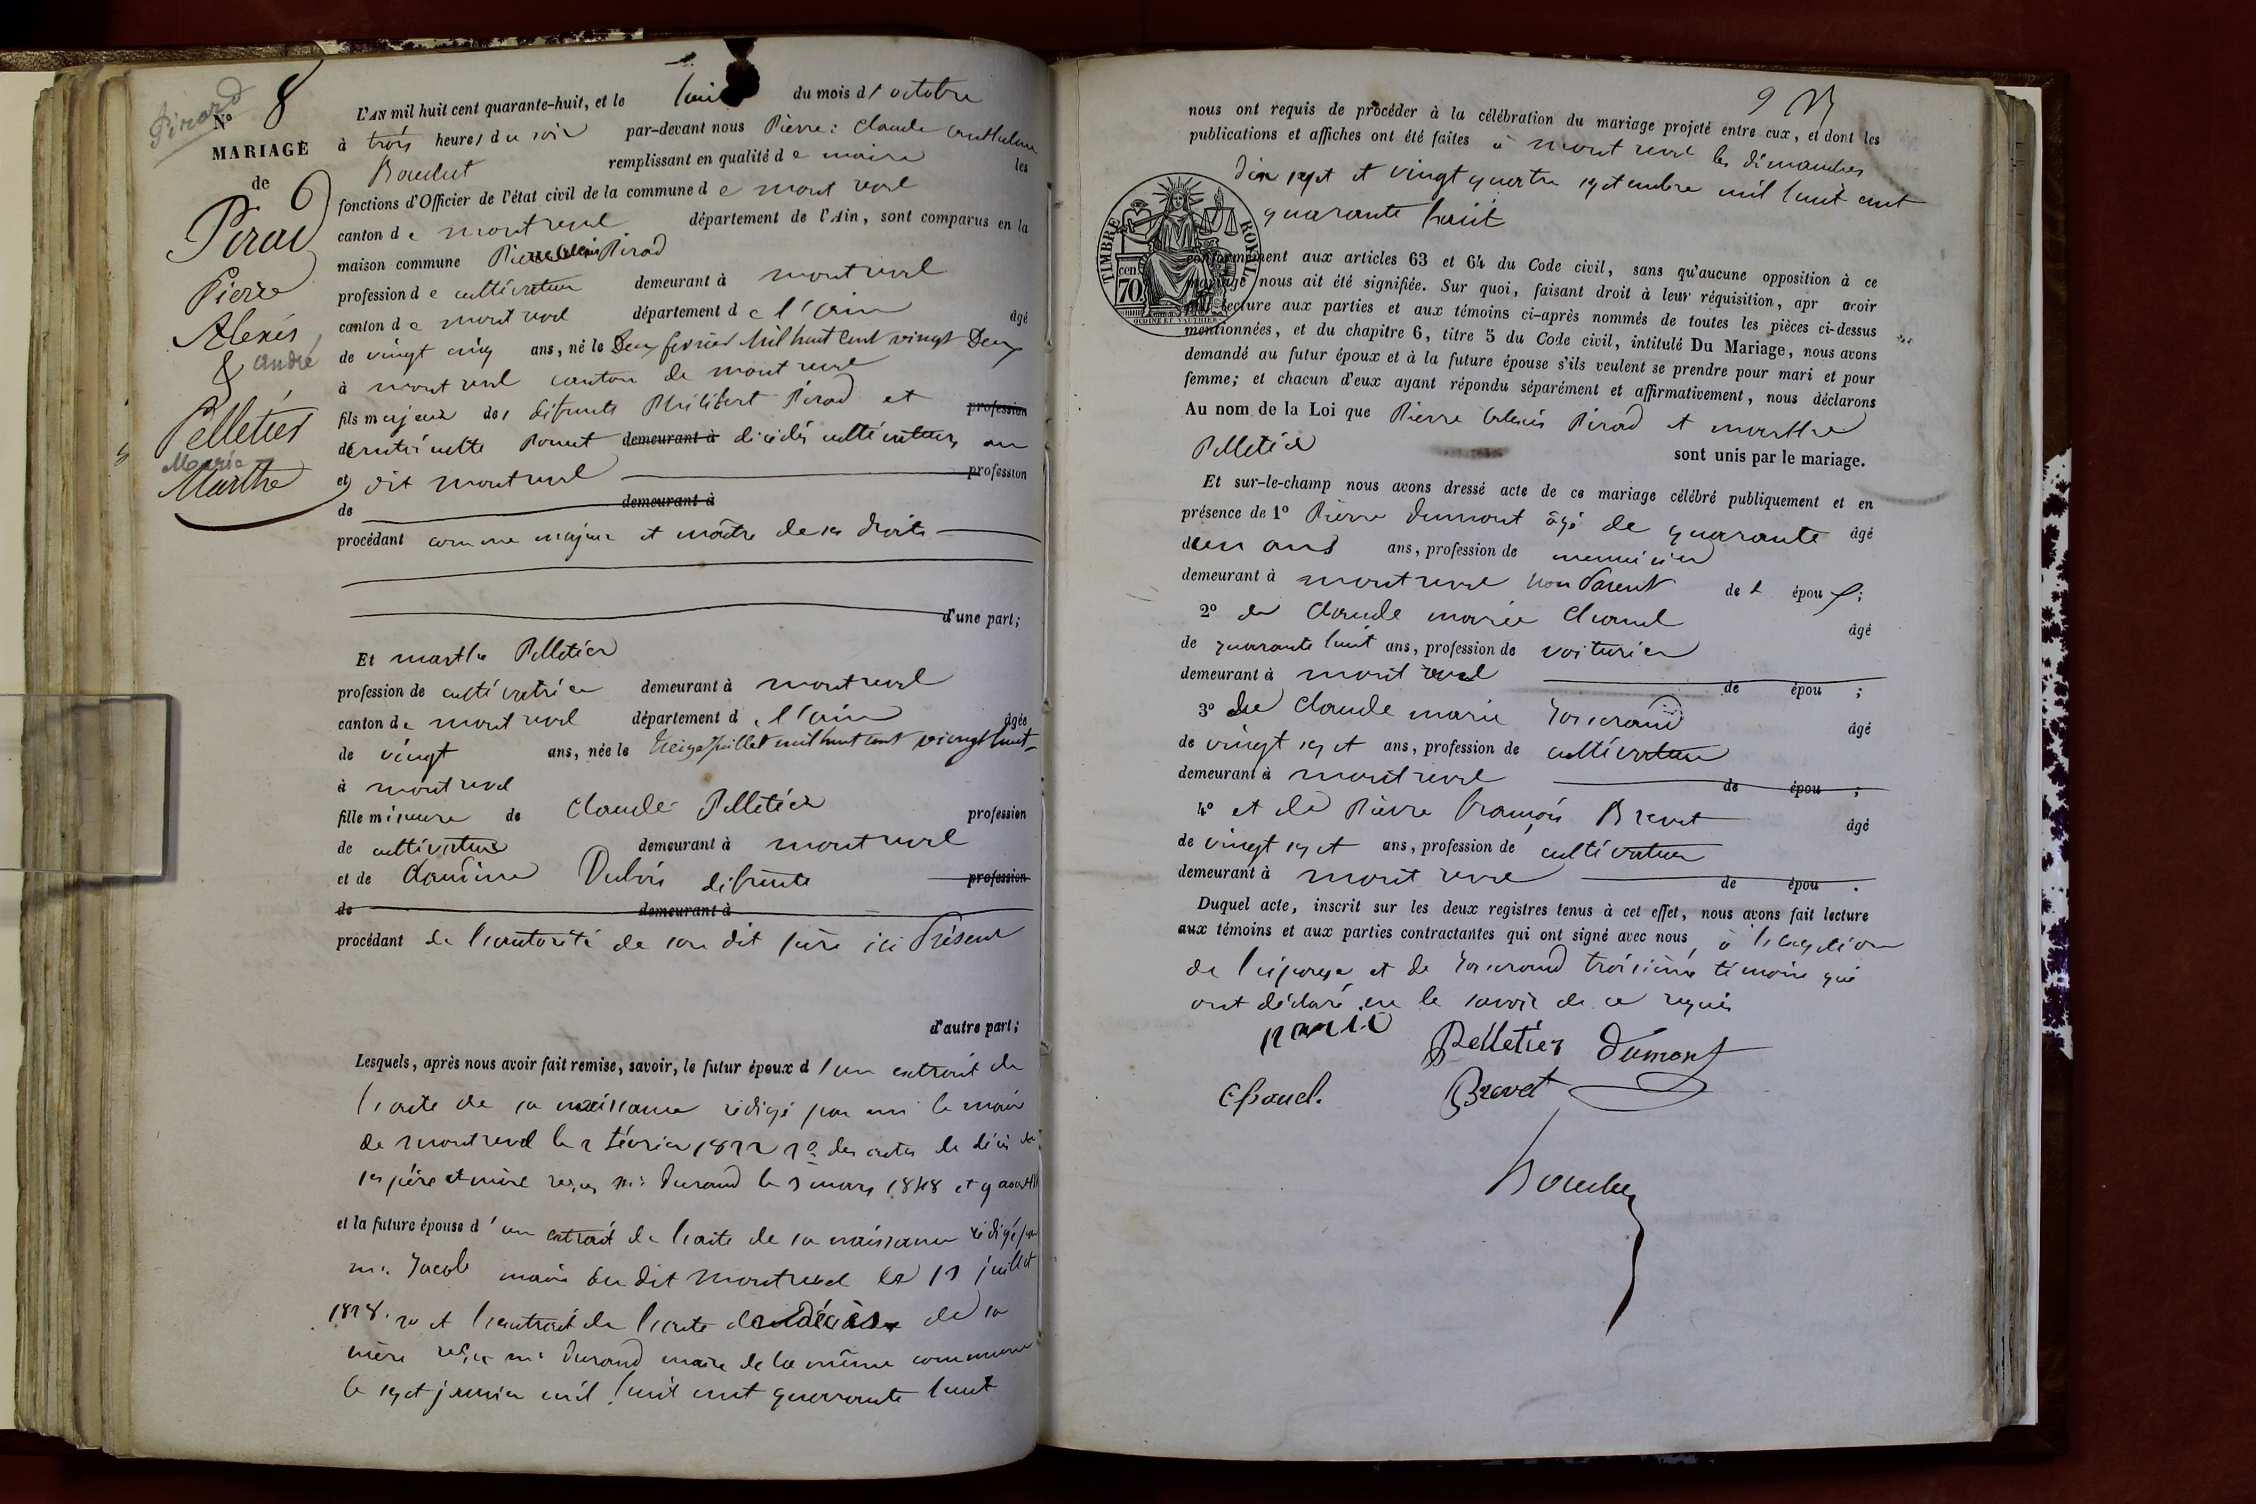 Pirard
N° 8
MARIAGE
de
Pirad
Pierre
Alexis
& andré
Pelletier
Marie
Marthe
L'AN mil huit cent quarante-huit, et le huit du mois d'octobre
à trois heures du soir par-devant nous Pierre: Claude
Bouchet remplissant en qualité de maire les
fonctions d'Officier de l'état civil de la commune de mont revel
canton de montrevel département de l'Ain, sont comparus en la
maison commune Pierre Alexis Pirad
profession de cultivateur demeurant à montrevel
canton de mont revel département de l'ain âgé
de vingt cinq ans, né le Deux février Mil huit Cent vingt Deux
à mont revel canton de mont revel
fils majeur des défunts Philibert Pirad et profession
de demeurant à décédés cultivateurs au
et dit montrevel profession
de demeurant à
procédant comme majeur et maître de ses droits
d'une part;
Et marthe Pelletier
profession de cultivatrice demeurant à montrevel
canton de mont revel département de l'ain âgée
de vingt ans, née le treize Juillet mil huit cent vingt huit
à montrevel
fille mineure de Claude Pelletier profession
de cultivateur demeurant à montrevel
et de Claudine Dubois défunte profession
de demeurant à
procédant de l'autorité de son dit père ici Présent
d'autre part;
Lesquels, après nous avoir fait remise, savoir, le futur époux d'un extrait de
l'acte de sa naissance rédigé par mr le maire
de montrevel le 2 février 1822 2° des actes de décès de
ses père et mère reçus mr Durand le 3 mars 1848 et 9 aout
et la future épouse d'un extrait de l'acte de sa naissance rédigé par
mr Jacob maire du dit montrevel le 13 juillet
1828. 2° et l'extrait de l'acte de décès de sa
mère reçu mr Durand maire de la même commune
le sept janvier mil huit cent quarante huit
9
nous ont requis de procéder à la célébration du mariage projeté entre eux, et dont les
publications et affiches ont été faites à mont revel les dimanches
dix sept et vingt quatre septembre mil huit cent
quarante huit
TIMBRE ROYAL
70 cen
conformément aux articles 63 et 64 du Code civil, sans qu'aucune opposition à ce
mariage nous ait été signifiée. Sur quoi, faisant droit à leur réquisition, apr avoir
lecture aux parties et aux témoins ci-après nommés de toutes les pièces ci-dessus
mentionnées, et du chapitre 6, titre 5 du Code civil, intitulé Du Mariage, nous avons
demandé au futur époux et à la future épouse s'ils veulent se prendre pour mari et pour
femme; et chacun d'eux ayant répondu séparément et affirmativement, nous déclarons
Au nom de la Loi que Pierre Alexis Pirad et marthe
Pelletier sont unis par le mariage.
Et sur-le-champ nous avons dressé acte de ce mariage célébré publiquement et en
présence de 1° Pierre Dumont âgé de quarante âgé
deux ans ans, profession de menuisier
demeurant à montrevel non Parent de l épou ;
2° de Claude marie Chanel âgé
de quarante huit ans, profession de voiturier
demeurant à mont revel de épou ;
3° de Claude marie Josserand âgé
de vingt sept ans, profession de cultivateur
demeurant à montrevel de épou ;
4° et de Pierre François Brevet âgé
de vingt sept ans, profession de cultivateur
demeurant à mont revel de épou .
Duquel acte, inscrit sur les deux registres tenus à cet effet, nous avons fait lecture
aux témoins et aux parties contractantes qui ont signé avec nous à l'exception
de l'épouse et de Josserand troisième témoin qui
ont déclaré ne le savoir de ce requis
Pelletier Dumont
Chanel. Brevet
Bouchet